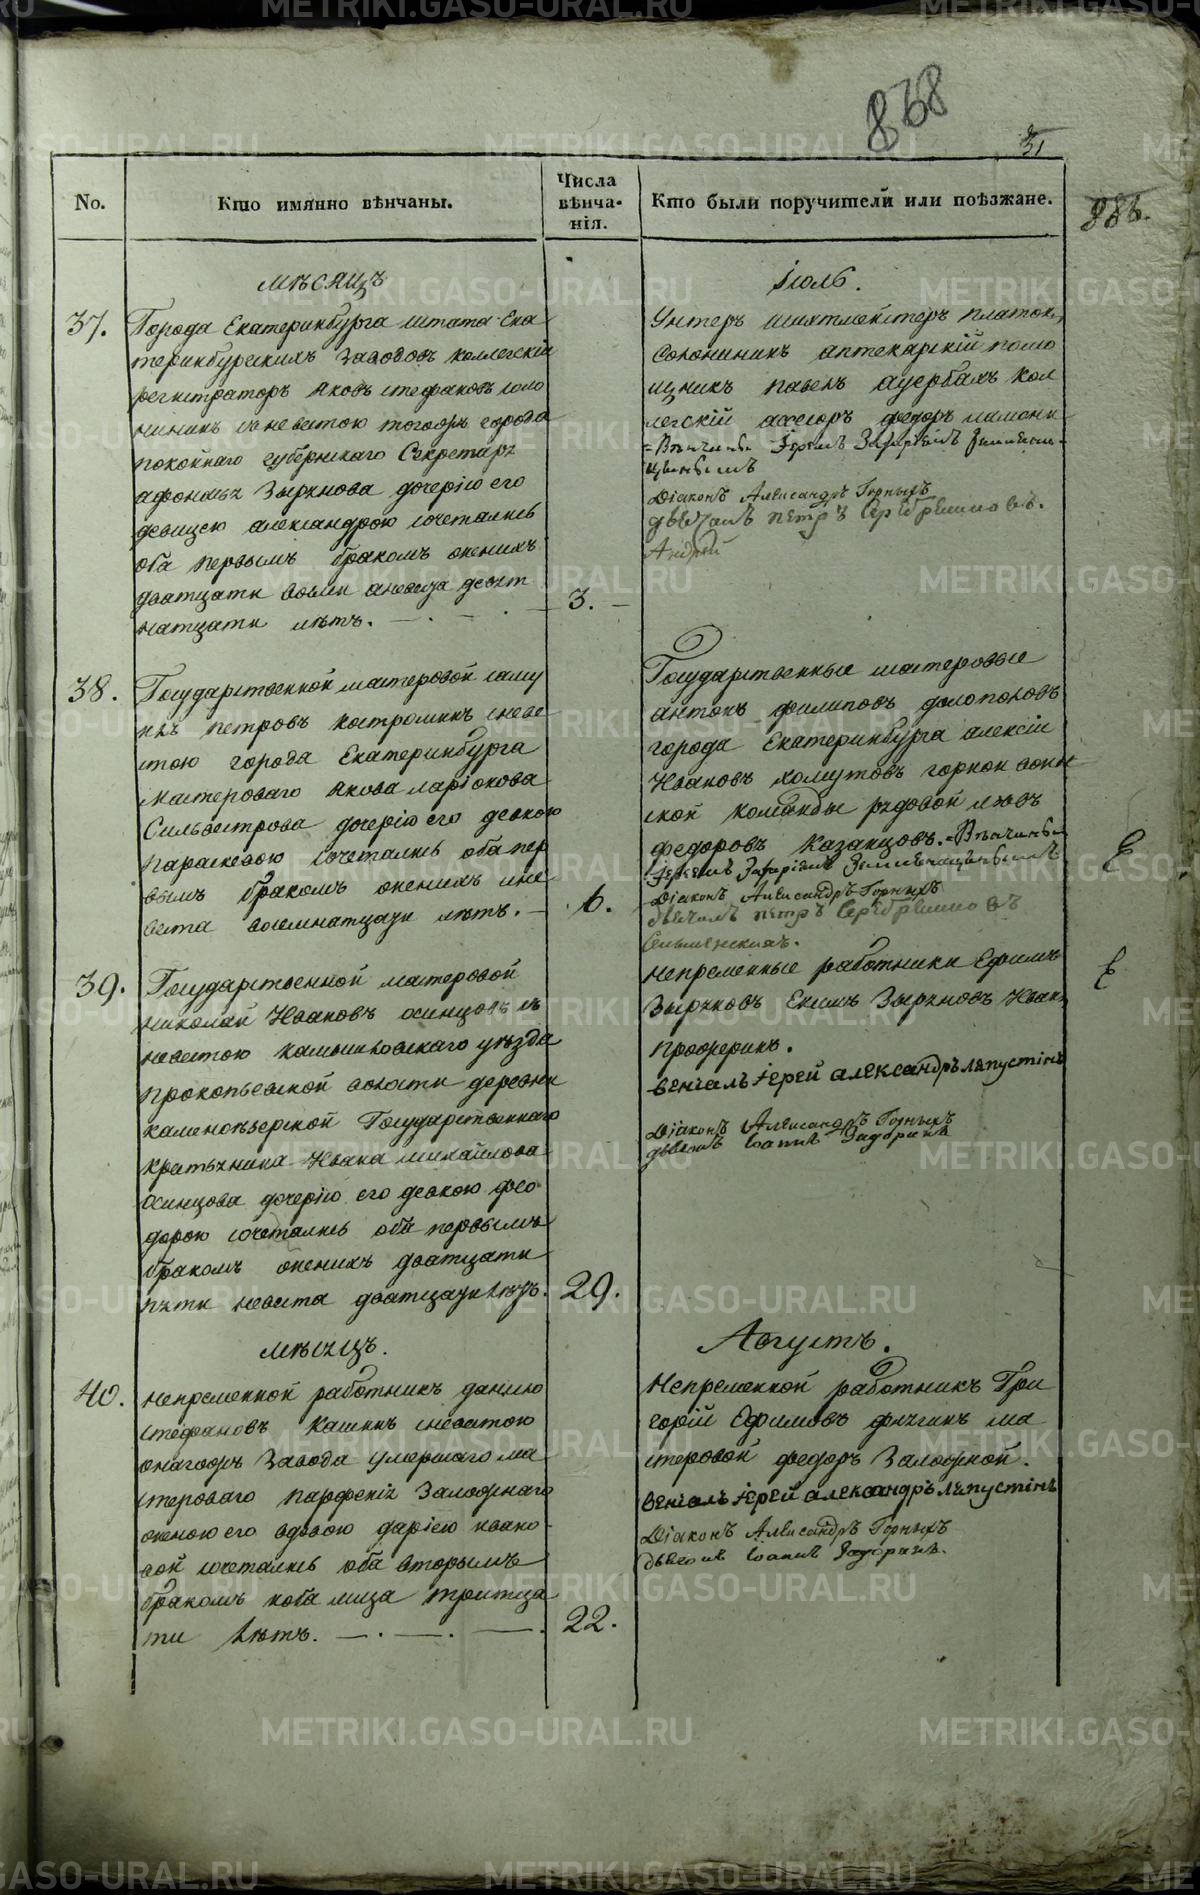 868
31
886.
No.
Кто имянно вѣнчаны.
Числа вѣнча-нія.
Кто были поручители или поѣзжане.
мѣсяцъ
Іюль.
37.
Города Екатеринбурга штата Ека
теринбургскихъ заводовъ коллегскій
регистраторъ Яковъ Стефановъ Соло
нининъ с невестою тогожъ города
покойнаго губернскаго Секретаря
Афонасья Зырянова дочерію его
девицею Александрою сочетались
оба первымъ бракомъ женихъ
дватцати восми а невеста девят
натцати лѣтъ.
3.
Унтеръ шихтмейстеръ Платонъ
Солонининъ аптекарскій помо
щникъ Павелъ Ауербахъ кол
легскій асесоръ Федоръ
Вѣнчалъ Іерей Захарій
Діаконъ Александръ Горныхъ
дьячокъ Петръ Серебрениковъ.
Андрей
38.
Государственной мастеровой Саму
илъ Петровъ Костроминъ с неве
стою города Екатеринбурга
мастероваго Якова Ларіонова
Сильвестрова дочерію его девкою
Параскевою сочетались оба пер
вымъ бракомъ женихъ и не
веста восемнатцати лѣтъ.
6.
Государственные мастеровые
Антонъ Филиповъ
города Екатеринбурга Алексій
Ивановъ Хомутовъ горной воин
ской команды рядовой Левъ
Федоровъ Казанцовъ. Вѣнчалъ
Іерей Захарій
Діаконъ Александръ Горныхъ
дьячокъ Петръ Серебрениковъ
39.
Государственной мастеровой
Николай Ивановъ Осинцовъ съ
невестою Камышловскаго уѣзда
Прокопьевской волости деревни
Каменоозерской Государственнаго
крестьянина Ивана Михайлова
Осинцова дочерію его девкою Фео
дорою сочетались оба первымъ
бракомъ женихъ дватцати
пяти невеста дватцати лѣтъ.
29.
непременные работники Ефимъ
Зыряновъ Екимъ Зыряновъ Иванъ
Просверинъ.
венчалъ Іерей Александръ Ляпустинъ
Діаконъ Александръ Горныхъ
дьячокъ Іоаннъ Задоринъ
мѣсяцъ.
Августъ.
40.
непременной работникъ Данило
Стефановъ Кашинъ с невестою
онагожъ завода умершаго ма
стероваго Парфенія Заложнаго
женою его вдовою Даріею Ивано
вой сочетались оба вторымъ
бракомъ и оба лица тритца
ти лѣтъ.
22.
Непременной работникъ Гри
горій Ефимовъ Фичкинъ ма
стеровой Федоръ Заложной.
венчалъ Іерей Александръ Ляпустинъ
Діаконъ Александръ Горныхъ
дьячокъ Іоаннъ Задоринъ.
METRIKI.GASO-URAL.RU